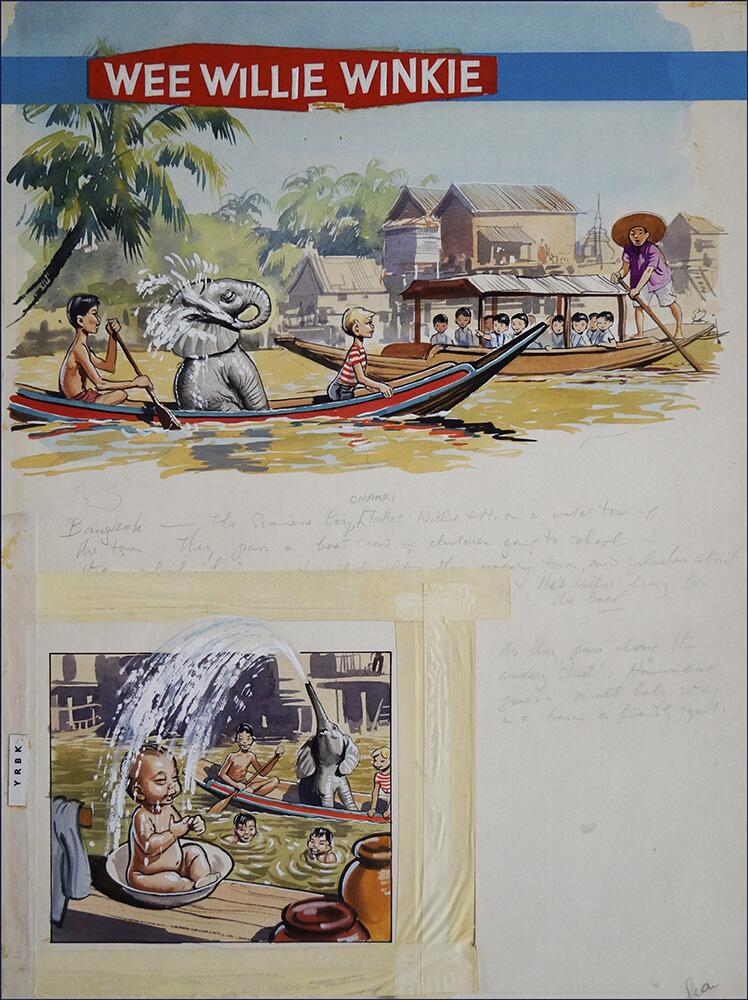 WEE WILLIE WINKIE
CHAKRI
Bangkok — The Siamese boy takes Willie & H. on a water tour of
the town. They pass a boat load of children going to school
watery town, and splashes about
He's rather heavy for
the boat
As they pass along the
watery street Hannibal
gives a small baby sitting
in a basin a friendly squirt.
YRBK